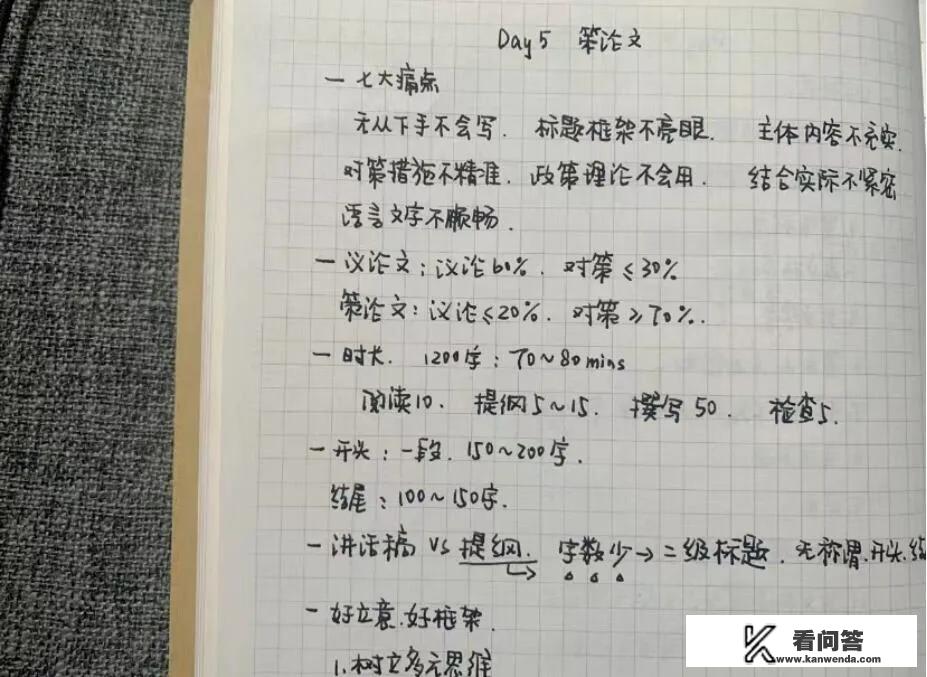 Day 5 策论文
一 七大痛点
无从下手不会写. 标题框架不亮眼. 主体内容不充实.
对策措施不精准. 政策理论不会用. 结合实际不紧密
语言文字不顺畅.
一 议论文：议论60%. 对策≤30%
策论文：议论≤20%. 对策≥70%.
一 时长. 1200字：70~80mins
阅读10. 提纲5~15. 撰写50. 检查5.
一 开头：一段. 150~200字.
结尾：100~150字.
一 讲话稿 VS 提纲. 字数少→二级标题. 无称谓.开头.结
一 好立意.好框架.
1.树立多元思维
看问答
www.kanwenda.com